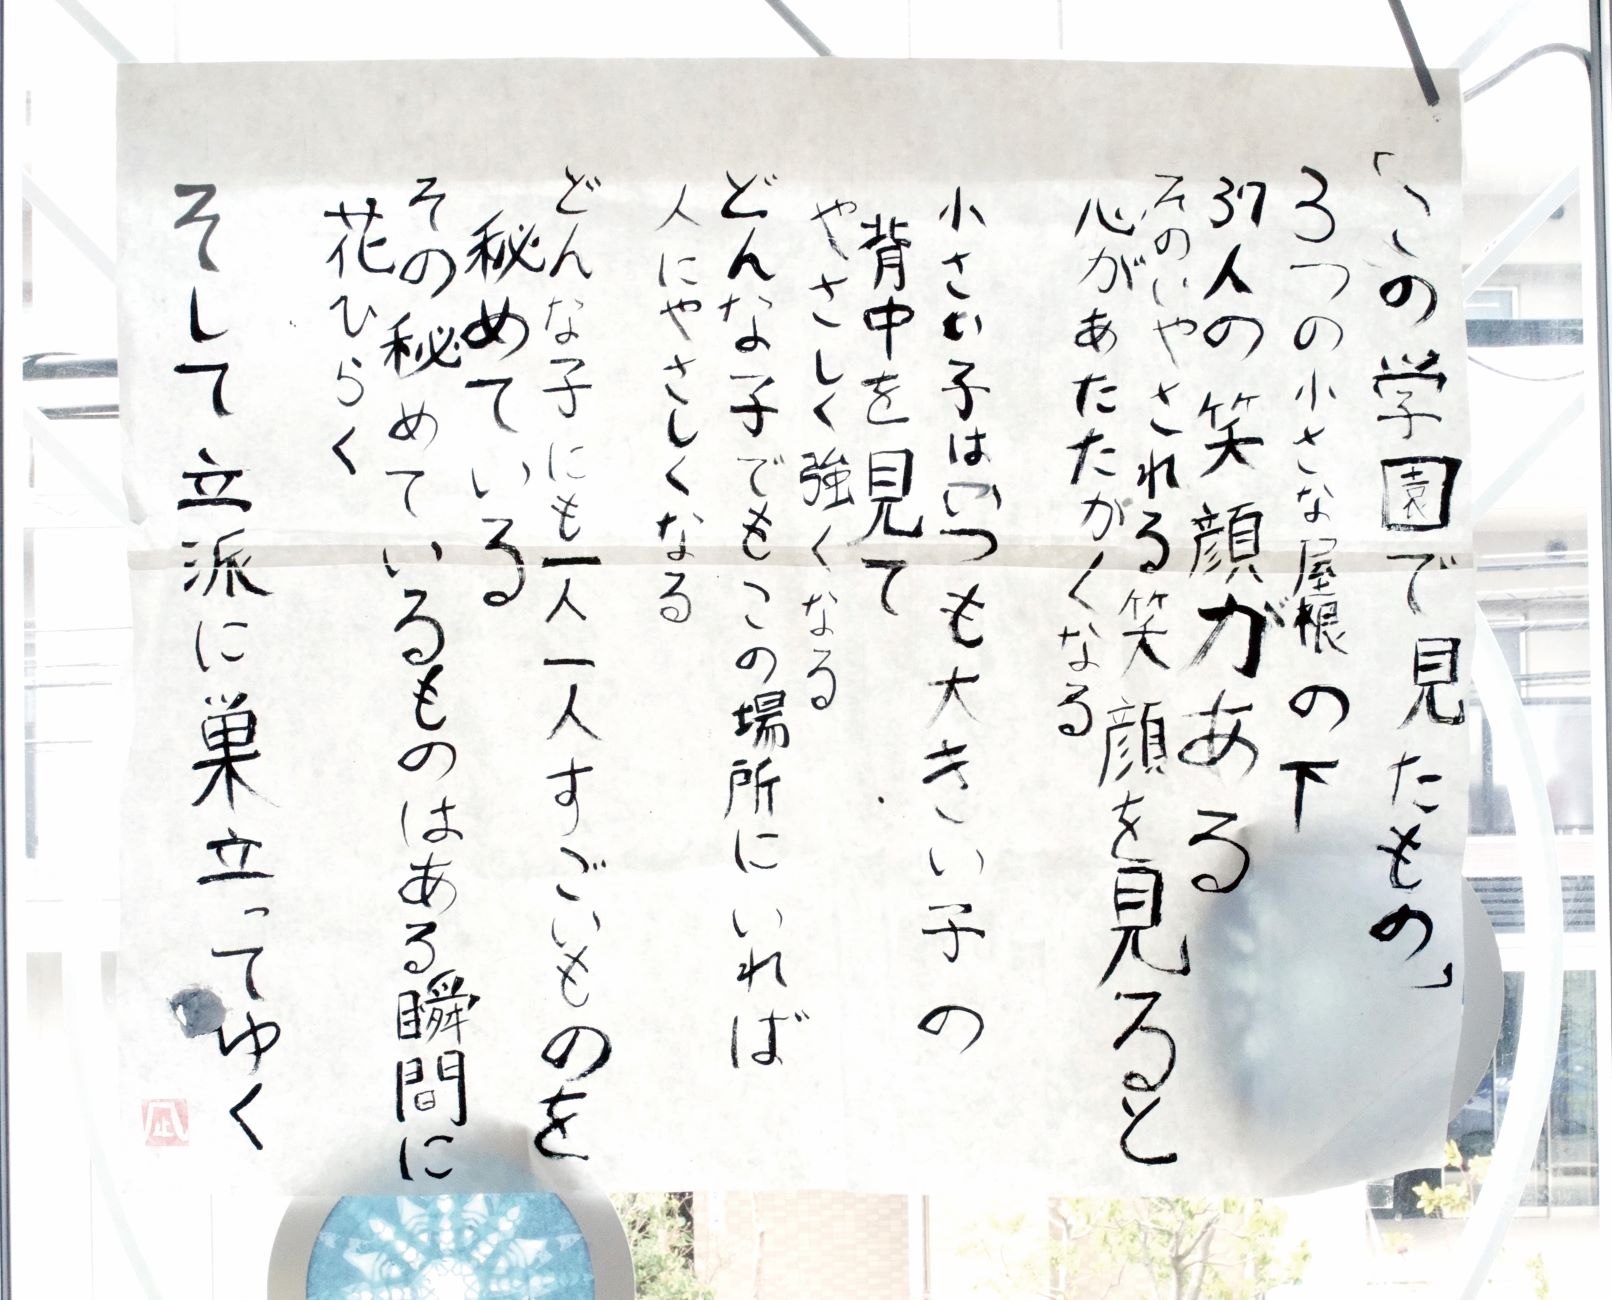 「この学園で見たもの」
3つの小さな屋根の下
37人の笑顔がある
そのいやされる笑顔を見ると
心があたたかくなる
小さい子はいつも大きい子の
背中を見て
やさしく強くなる
どんな子でもこの場所にいれば
人にやさしくなる
どんな子にも一人一人すごいものを
秘めている
その秘めているものはある瞬間に
花ひらく
そして立派に巣立ってゆく
凪